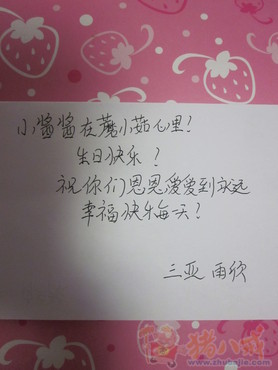 小酱酱在蘑小茹心里!
生日快乐!
祝你们恩恩爱爱到永远
幸福快乐每一天!
三亚 雨欣
猪八戒
www.zhubajie.com